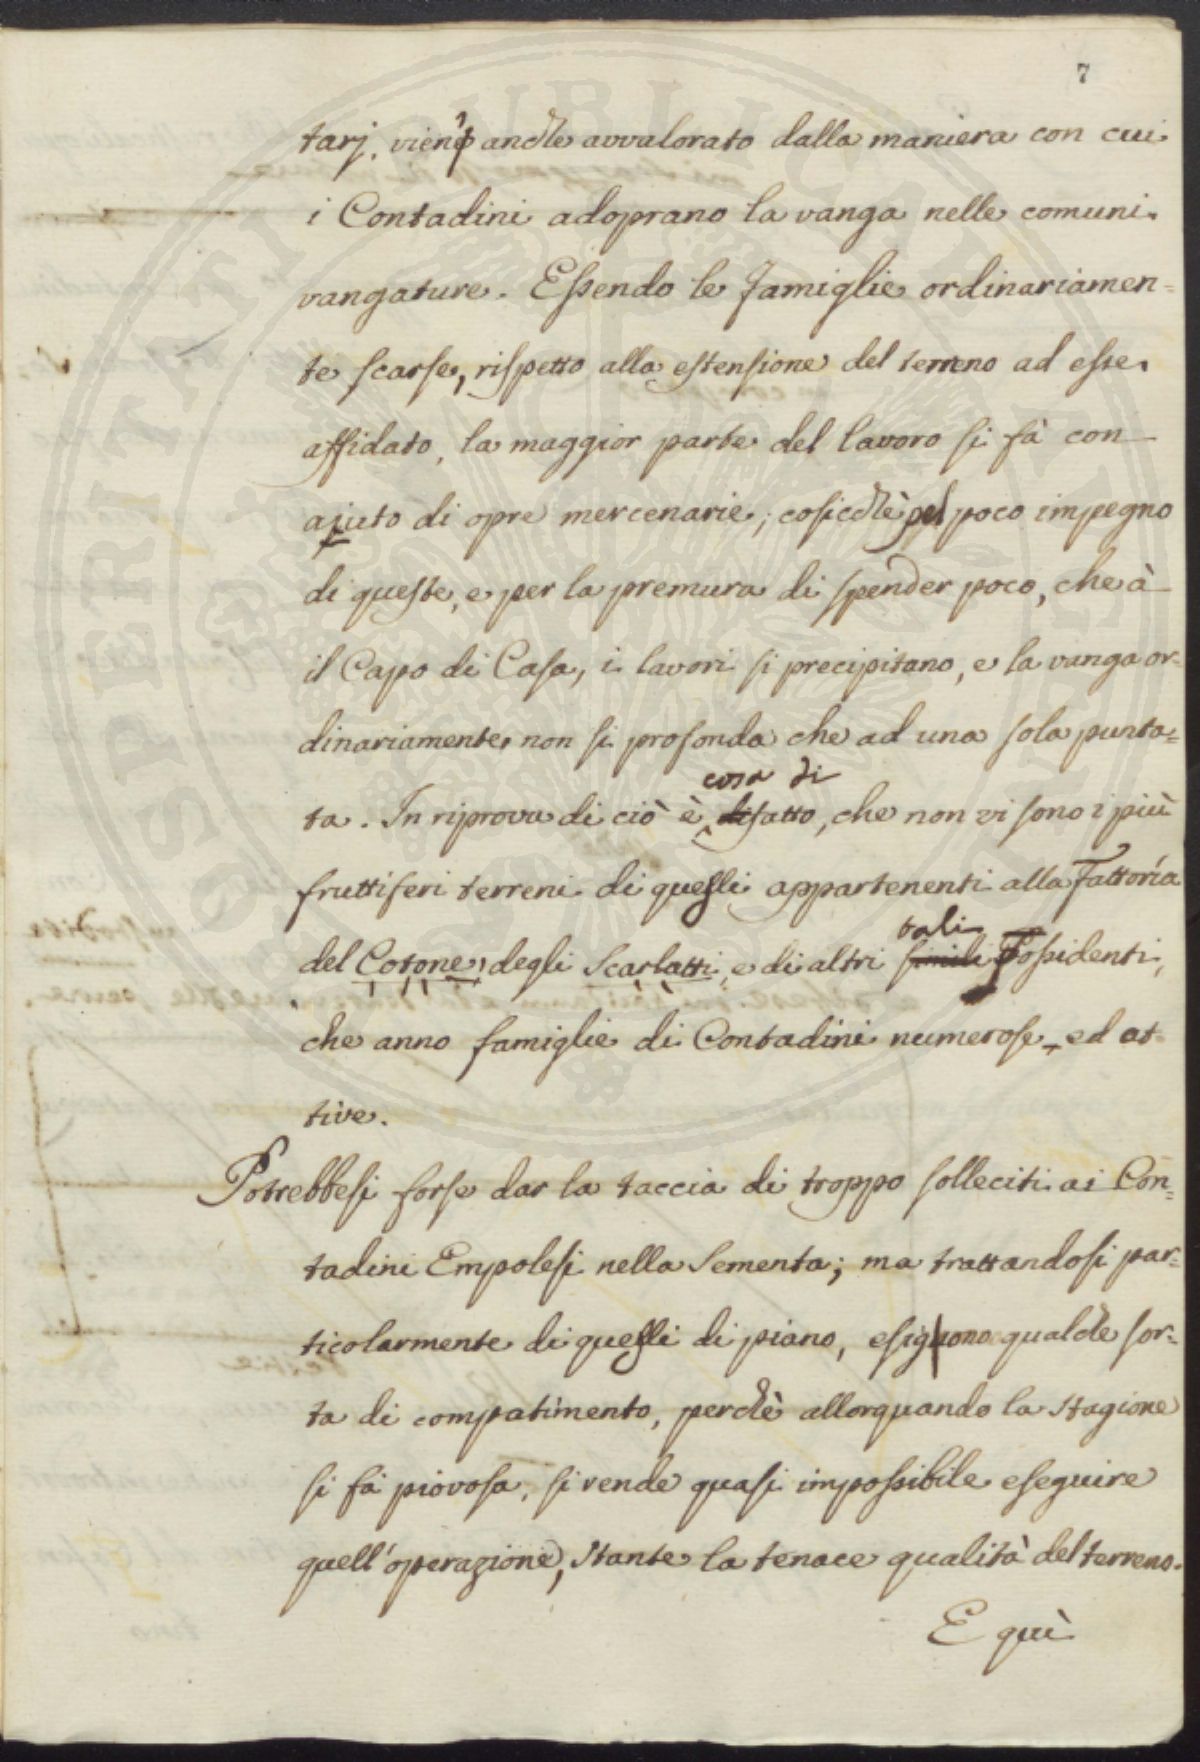 7
tarj, viene anche avvalorato dalla maniera con cui
i Contadini adoprano la vanga nelle comuni
vangature. Essendo le famiglie ordinariamen=
te scarse, rispetto alla estensione del terreno ad esse
affidato, la maggior parte del lavoro si fà con
ajuto di opre mercenarie; cosicchè pel poco impegno
di queste, e per la premura di spender poco, che à
il Capo di Casa, i lavori si precipitano, e la vanga or=
dinariamente non si profonda che ad una sola punta=
cosa di
ta. In riprova di ciò è di fatto, che non vi sono i più
fruttiferi terreni di quelli appartenenti alla Fattoría
tali
del Cotone, degli Scarlatti, e di altri simili Possidenti,
che anno famiglie di Contadini numerose, ed at=
tive.
Potrebbesi forse dar la taccia di troppo solleciti ai Con=
tadini Empolesi nella Sementa; ma trattandosi par=
ticolarmente di quelli di piano, esigono qualche sor=
ta di compatimento, perchè allorquando la Stagione
si fà piovosa, si rende quasi impossibile eseguire
quell'operazione, stante la tenace qualità del terreno.
E quì